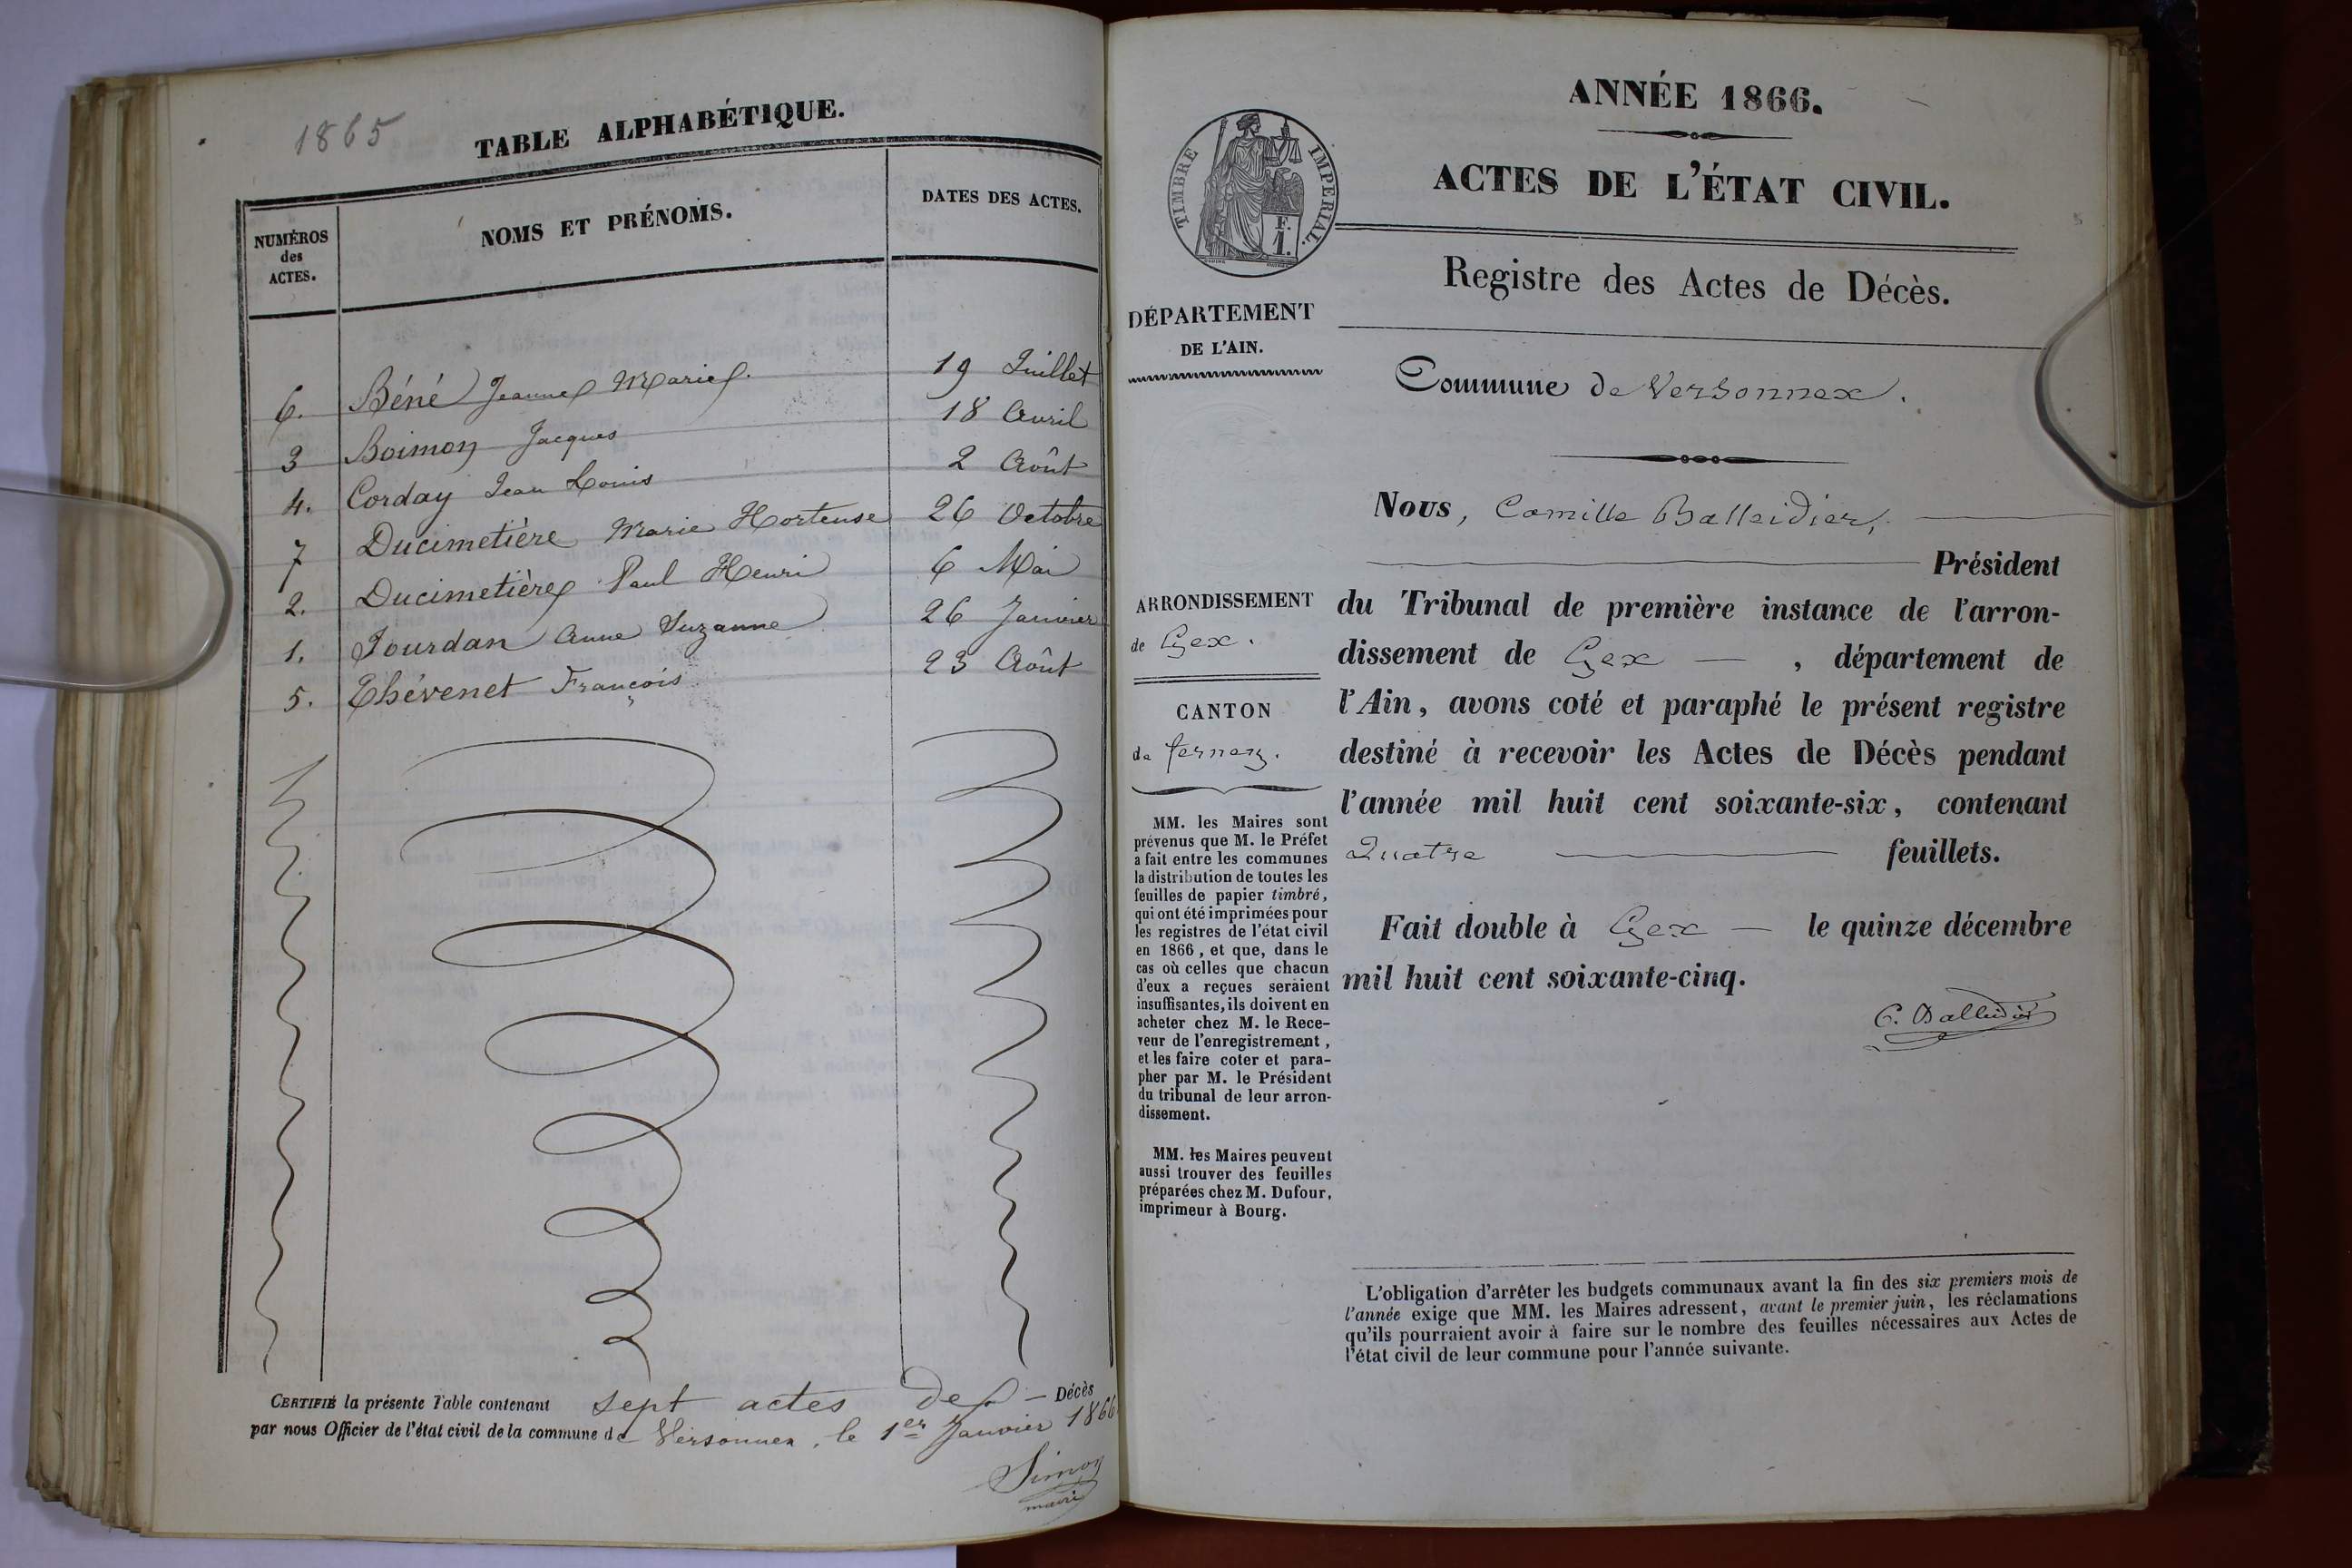 1865
TABLE ALPHABÉTIQUE.
NUMÉROS des ACTES.
NOMS ET PRÉNOMS.
DATES DES ACTES.
6. Béné Jeanne Marie. 19 Juillet
3 Boimon Jacques 18 Avril
4. Corday Jean Louis 2 Août
7 Ducimetière Marie Hortense 26 Octobre
2. Ducimetière Paul Henri 6 Mai
1. Jourdan Anne Suzanne 26 Janvier
5. Thévenet François 23 Août
CERTIFIÉ la présente Table contenant sept actes de Décès
par nous Officier de l'état civil de la commune de Versonnex, le 1er Janvier 1866
Simon
maire
ANNÉE 1866.
ACTES DE L'ÉTAT CIVIL.
TIMBRE IMPERIAL.
F.
1.
Registre des Actes de Décès.
DÉPARTEMENT
DE L'AIN.
Commune de Versonnex.
ARRONDISSEMENT
de Gex.
CANTON
de Ferney.
MM. les Maires sont
prévenus que M. le Préfet
a fait entre les communes
la distribution de toutes les
feuilles de papier timbré,
qui ont été imprimées pour
les registres de l'état civil
en 1866, et que, dans le
cas où celles que chacun
d'eux a reçues seraient
insuffisantes, ils doivent en
acheter chez M. le Rece-
veur de l'enregistrement,
et les faire coter et para-
pher par M. le Président
du tribunal de leur arron-
dissement.
MM. les Maires peuvent
aussi trouver des feuilles
préparées chez M. Dufour,
imprimeur à Bourg.
Nous, Camille Balleidier,
Président
du Tribunal de première instance de l'arron-
dissement de Gex, département de
l'Ain, avons coté et paraphé le présent registre
destiné à recevoir les Actes de Décès pendant
l'année mil huit cent soixante-six, contenant
Quatre feuillets.
Fait double à Gex le quinze décembre
mil huit cent soixante-cinq.
C. Balleidier
L'obligation d'arrêter les budgets communaux avant la fin des six premiers mois de
l'année exige que MM. les Maires adressent, avant le premier juin, les réclamations
qu'ils pourraient avoir à faire sur le nombre des feuilles nécessaires aux Actes de
l'état civil de leur commune pour l'année suivante.